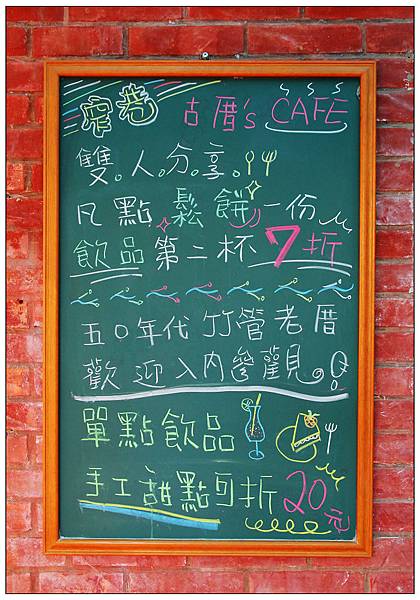 窄巷 古厝's CAFE
雙。人。分。享。
凡點鬆餅一份
飲品第二杯7折
五〇年代竹管老厝
歡迎入內參觀。
單點飲品
手工甜點可折20元